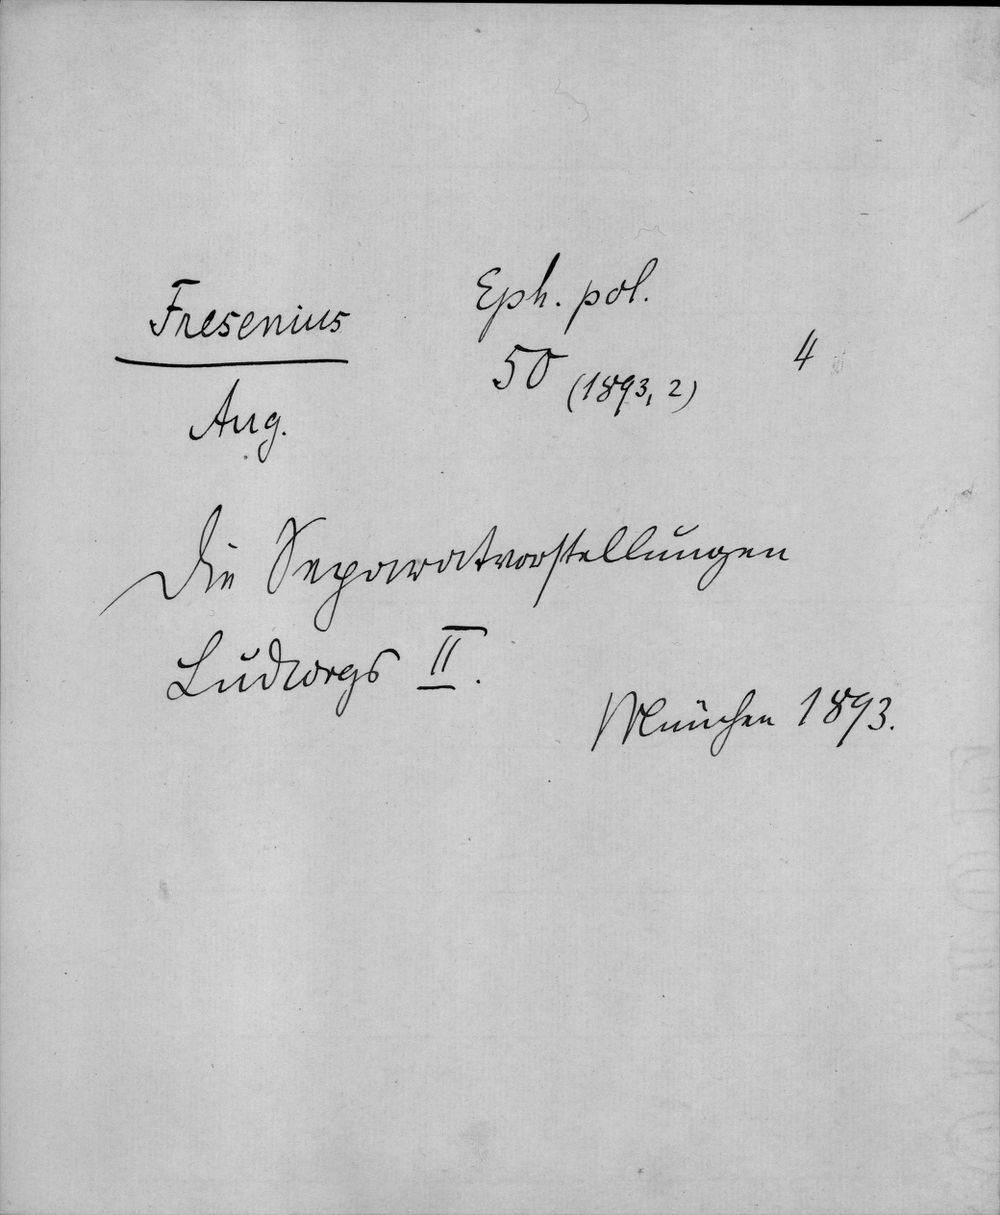 Fresenius
Aug.
Eph. pol.
50 (1893, 2)
4
Die Separatvorstellungen
Ludwigs II.
München 1893.